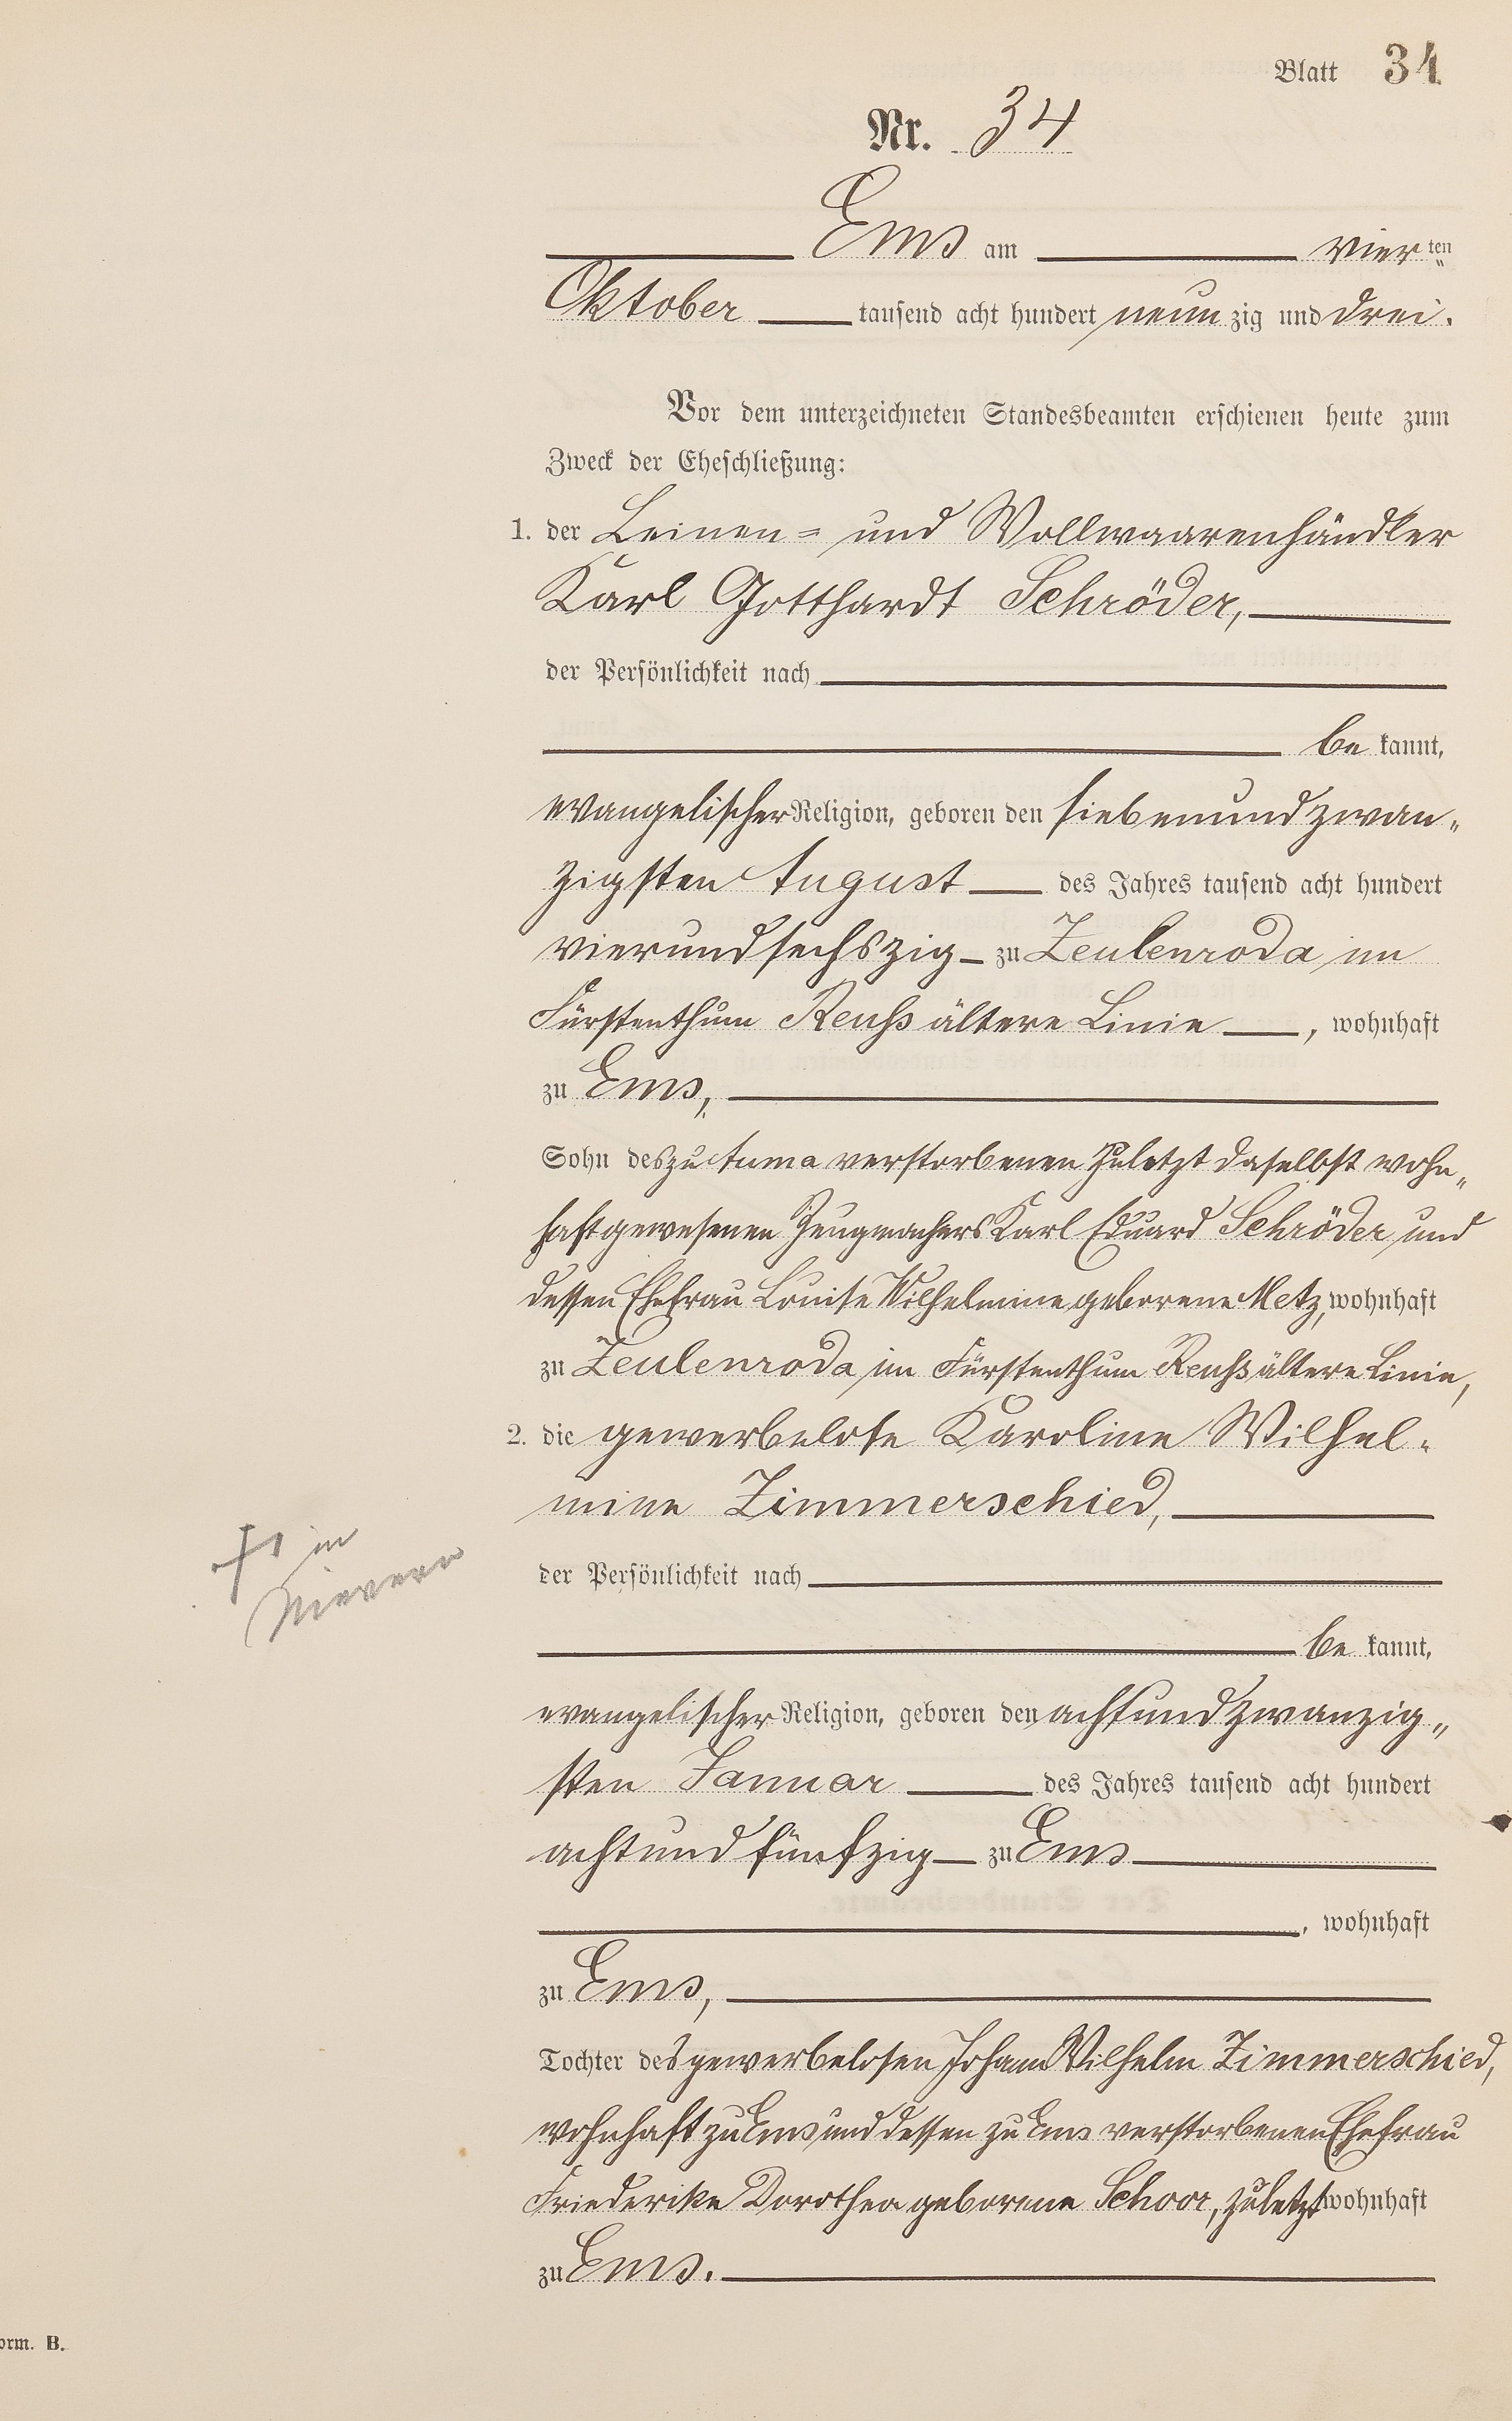 Blatt 34
Nr. 34
Ems am vierten
Oktober tausend acht hundert neunzig und drei.
Vor dem unterzeichneten Standesbeamten erschienen heute zum
Zweck der Eheschließung:
1. der Leinen= und Wollwaarenhändler
Karl Gotthardt Schröder,
der Persönlichkeit nach
be kannt,
evangelischer Religion, geboren den siebenundzwan„
zigsten August des Jahres tausend acht hundert
vierundsechszig zu Zeulenroda im
Fürstenthum Reuß ältere Linie, wohnhaft
zu Ems,
Sohn des zu Auma verstorbenen zuletzt daselbst wohn„
haft gewesenen Zeugmachers Karl Eduard Schröder und
dessen Ehefrau Louise Wilhelmine geborene Metz, wohnhaft
zu Zeulenroda im Fürstenthum Reuß ältere Linie,
2. die gewerbelose Karoline Wilhel-
mine Zimmerschied,
der Persönlichkeit nach
† in
Nievern
be kannt,
evangelischer Religion, geboren den achtundzwanzig„
sten Januar des Jahres tausend acht hundert
achtundfünfzig zu Ems
, wohnhaft
zu Ems,
Tochter des gewerbelosen Johann Wilhelm Zimmerschied,
wohnhaft zu Ems und dessen zu Ems verstorbenen Ehefrau
Friederike Dorothea geborene Schoor, zuletzt wohnhaft
zu Ems.
orm. B.